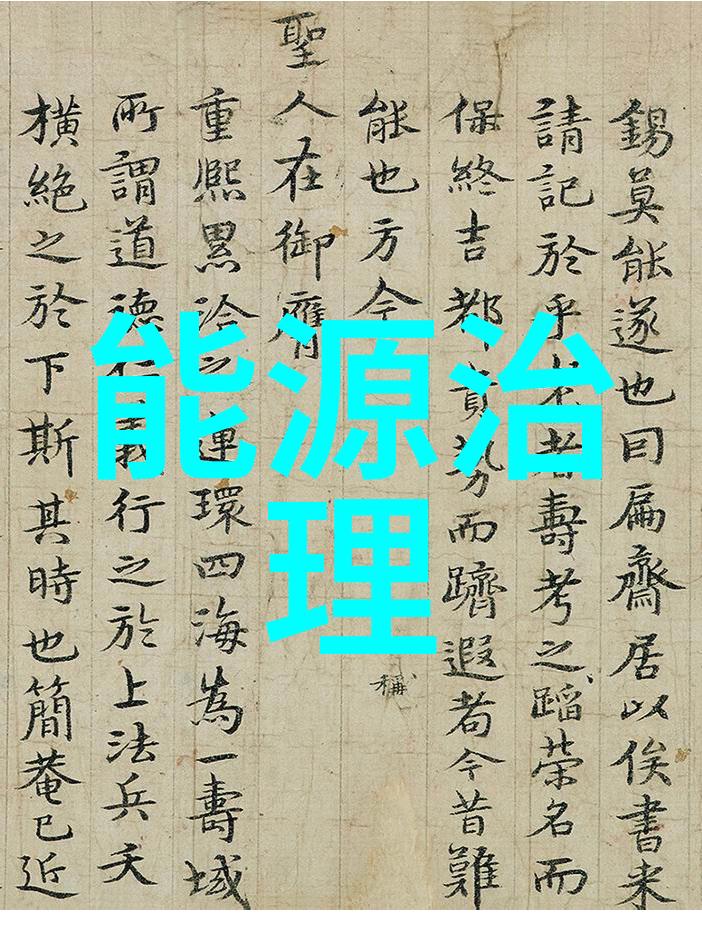 錫莫能遂也曰扁齋居以俟書来
請記於乎者壽考之蹈榮名而
保終吉都貴勢而躋遐耇今昔難
能也方今
稱
聖人在御膺
重熙累洽之運環四海為一壽域
所謂道德仁義行之於上法兵夭
橫絶之於下斯其時也簡菴已近
能源治
理